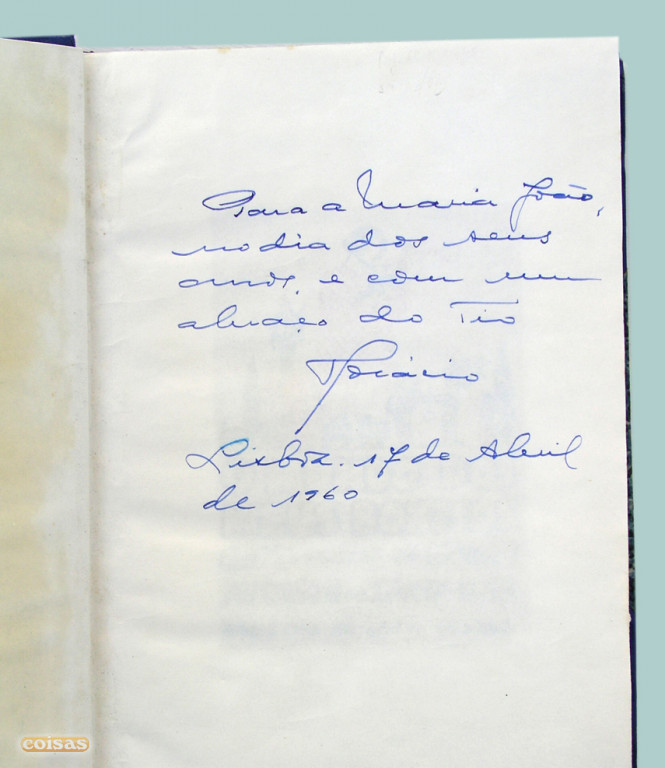 Para a Maria João,
no dia dos seus
anos, e com um
abraço do Tio
Lisboa. 17 de Abril
de 1960
coisas